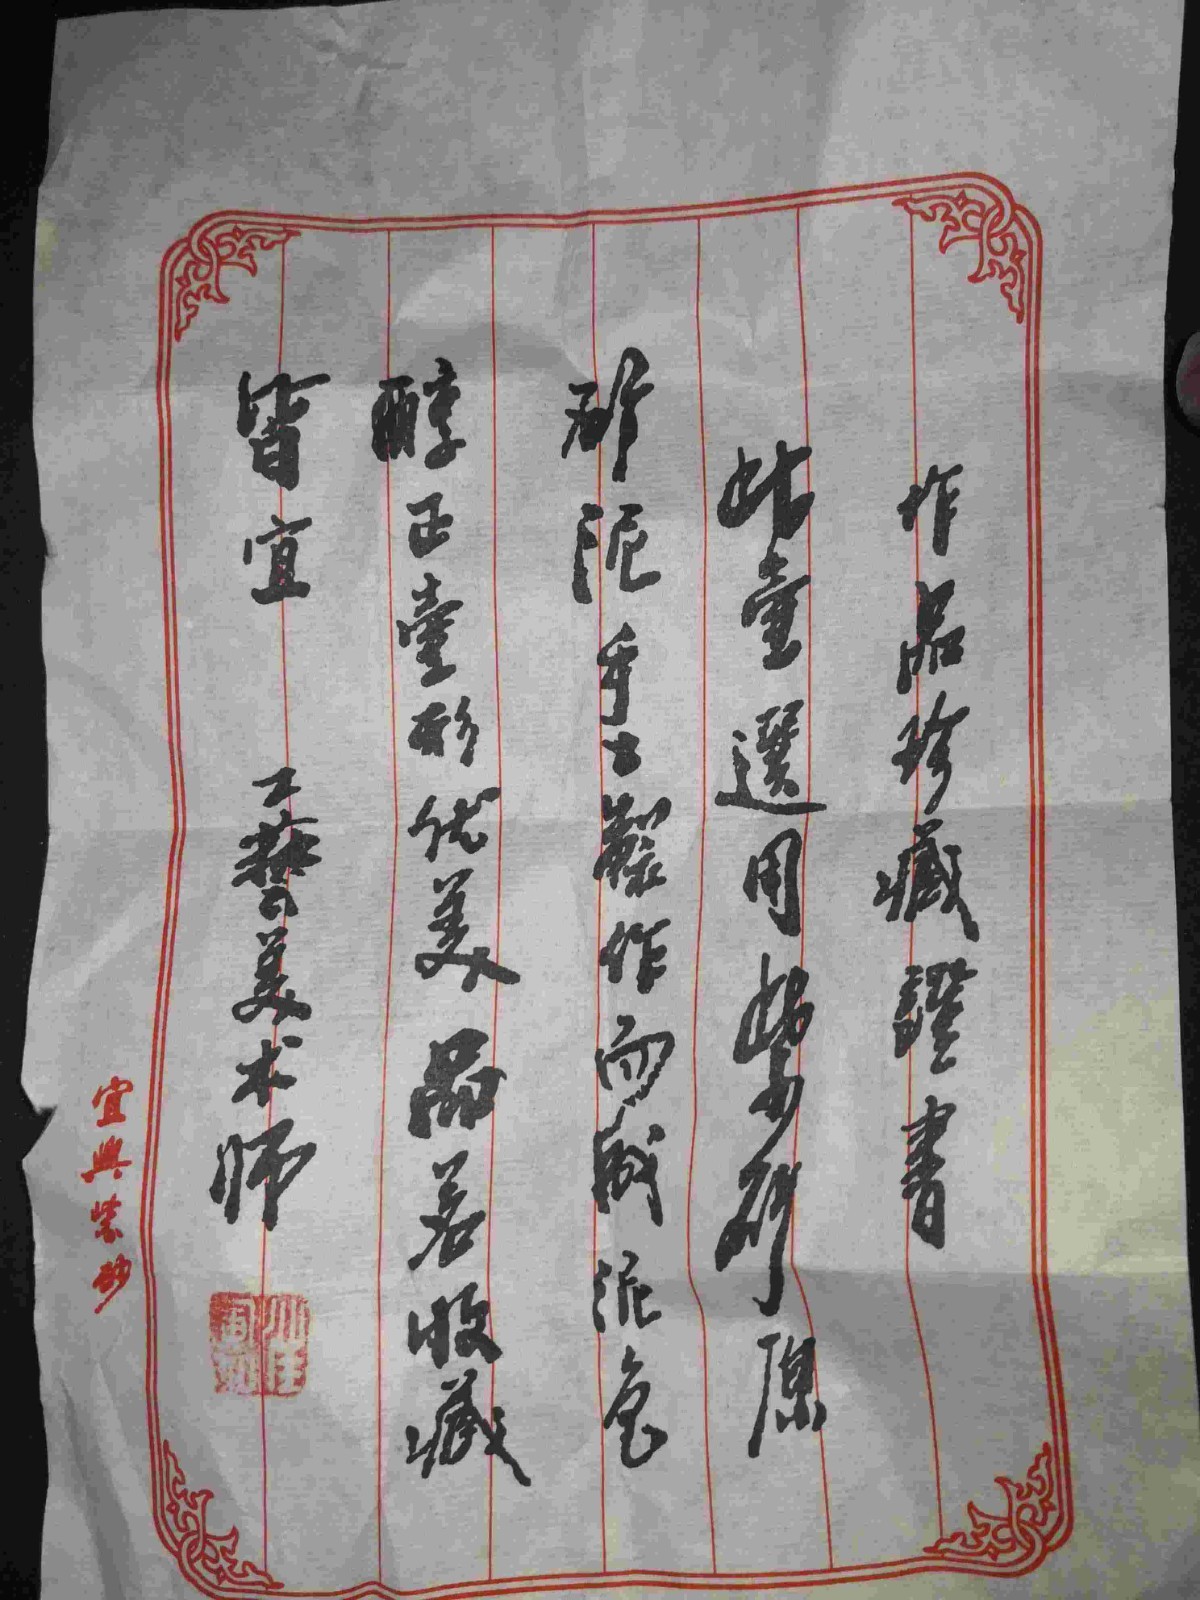 作品珍藏證書
此壺選用紫砂原
砂泥手工製作而成泥色
醇正壺形优美品茗收藏
皆宜 工藝美术师
宜興紫砂